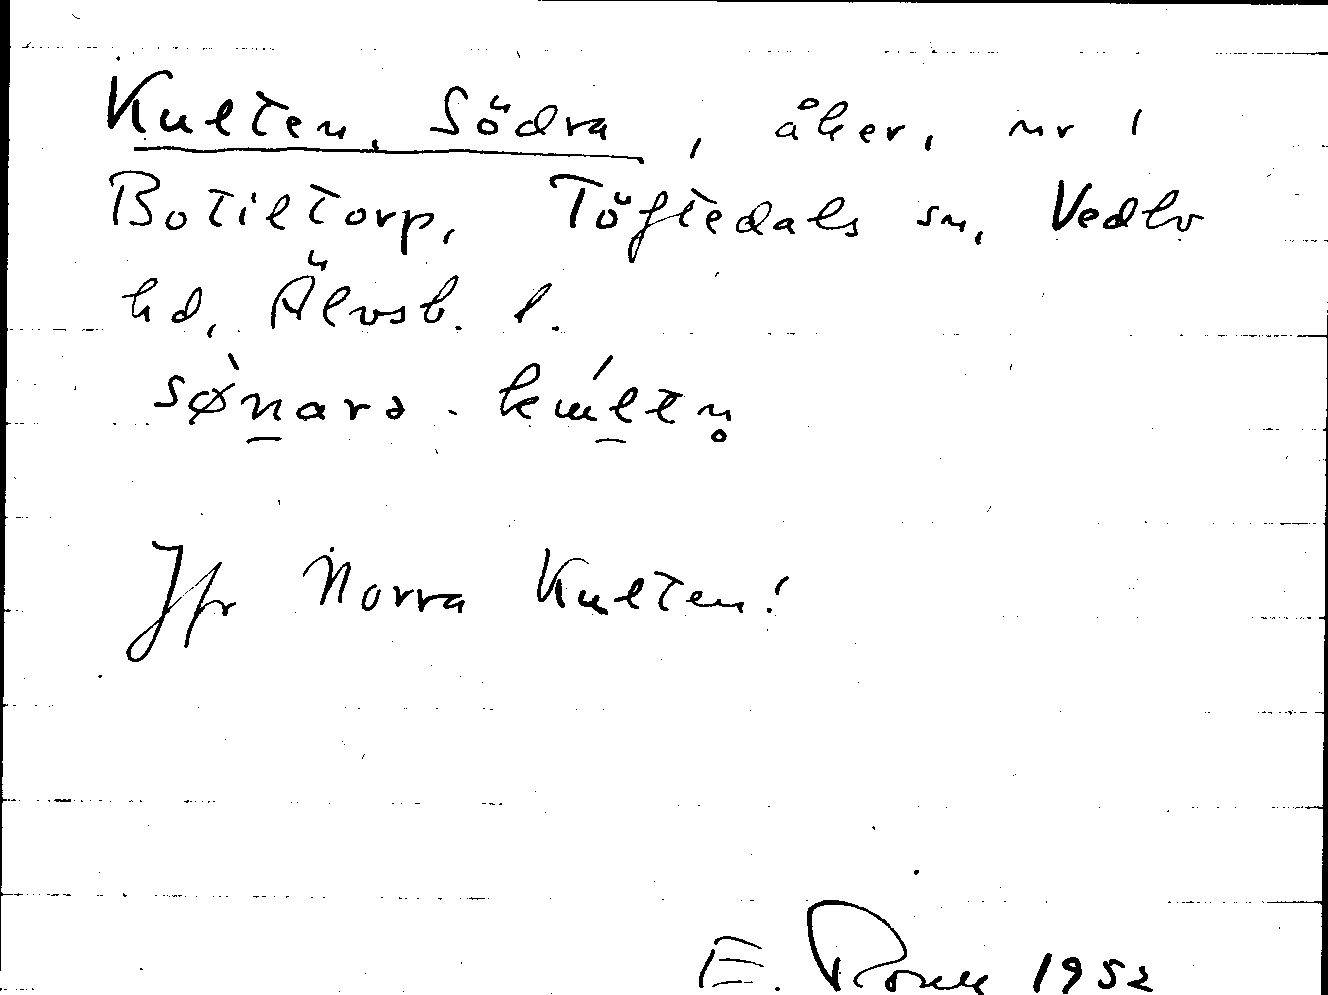 Kulten, Södra, åker, nr 1
Botiltorp, Töftedals sn, Vedbo
hd, Älvsb. l.
sø̀nara - kúltn̥
Jfr Norra Kulten!
E. 1952